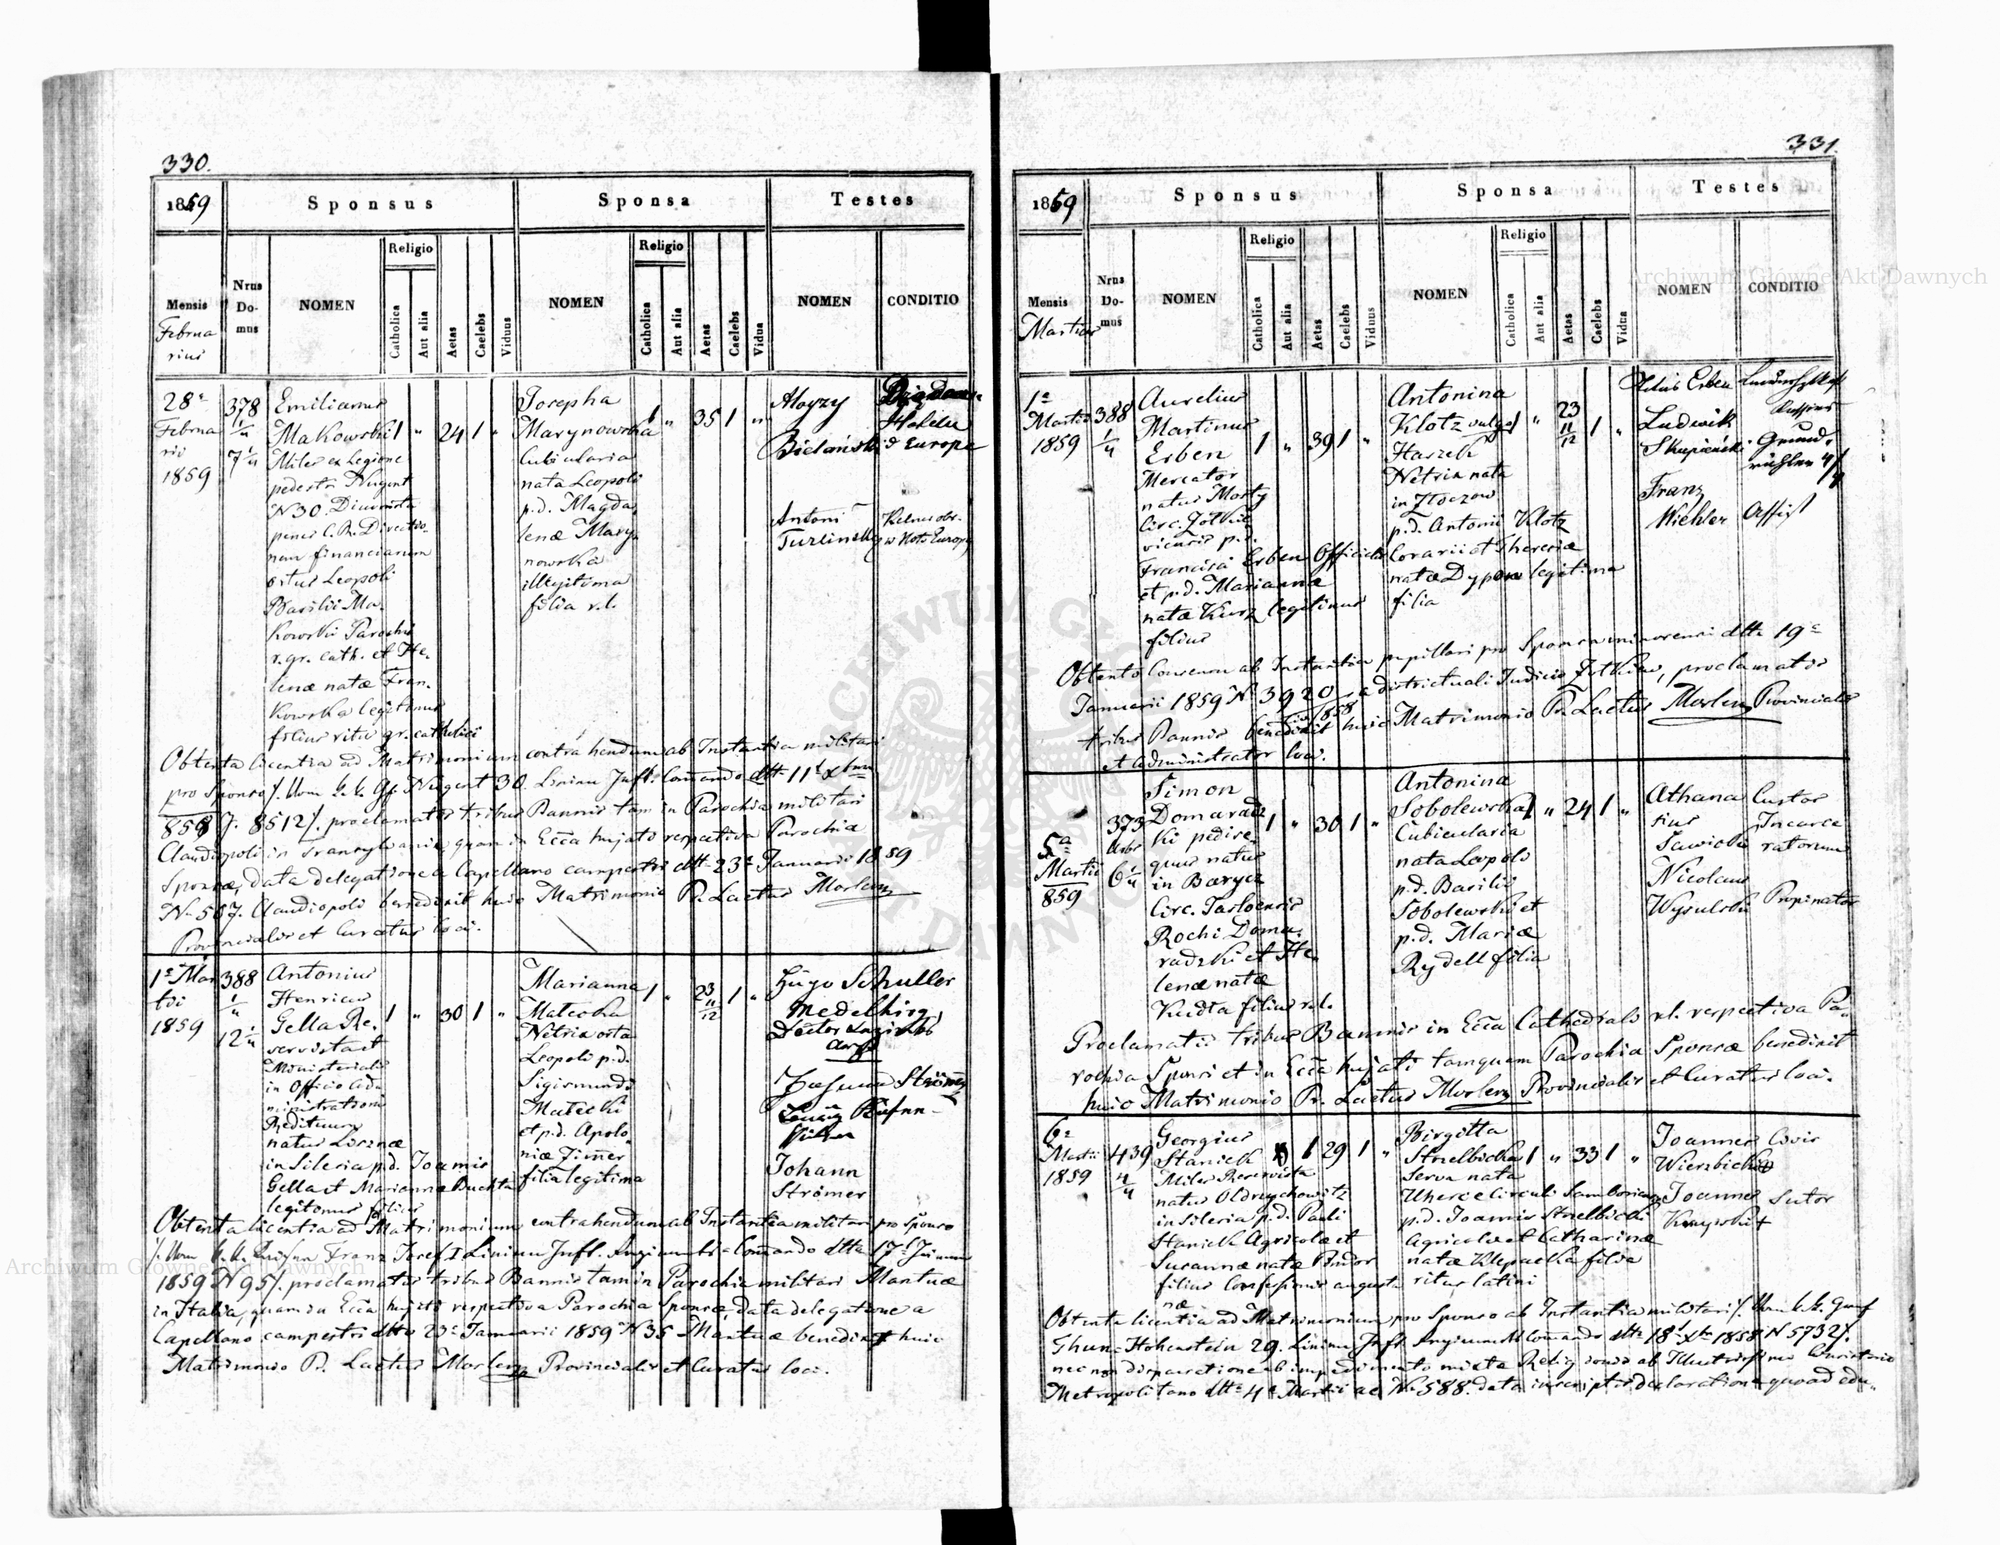 330.
1859
Sponsus
Sponsa
Testes
Mensis
Februa
rius
Nrus
Do-
mus
NOMEN
Religio
Catholica
Aut alia
Aetas
Caelebs
Viduus
NOMEN
Religio
Catholica
Aut alia
Aetas
Caelebs
Vidua
NOMEN
CONDITIO
28a
Februa
rii
1859
378
1/4
7 1/4
Emilianus
Makowski
Miles ex Legione
pedestri Nugent
N 30. Diurnista
penes C. R. Directio-
nem financiarum
ortus Leopoli
Basilii Ma-
kowski Parochi
r. gr. cath. et He-
lenæ natæ Fran-
kowska legitimus
filius ritu gr. catholici
1 " 24 1 "
Josepha
Marynowska
Cubicularia
nata Leopoli
p.d. Magda-
lenæ Mary-
nowska
illegitima
filia r.l.
1 " 35 1 "
Aloyzy
Bielański
Hotelu
d Europe
Antoni
Turlinski
Kelner obr.
w Hotelu Europy
Obtenta licentia ad Matrimonium contrahendum ab Instantia militari
pro Sponso /. Vom k.k. Gf. Nugent 30. Linien Inft. Comando dtt 11t Xbris
858 J. 8512/. proclamatis tribus Bannis tam in Parochia militari
Claudiopoli in Transylvania, quam in Ecca hujati respectiva Parochia
Sponsæ, data delegatione a Capellano campestri dtt 23a Januarii 1859
No 567. Claudiopoli benedixit huic Matrimonio Pr. Laetus Morlenz
Provincialis et Curatus loci.
1a Mar
tii
1859
388
1/4
12 1/4
Antonius
Henricus
Gella Re-
servista et
Ministeriali
in Officio ad-
ministrationi
Redituum
natus
in Silesia p.d. Joannis
Gella et Mariannæ Buchta
legitimus filius
1 " 30 1 "
Marianna
Matecka
Netrix orta
Leopoli p.d.
Sigismundi
Matecki
et p.d. Apolo-
niæ Zimer
filia legitima
1 " 23 11/12 1 "
Hugo Schuller
Johann
Strömer
Obtenta licentia ad Matrimonium contrahendum ab Instantia militari pro Sponso
/. Vom k.k. Kaiser Franz Josef I Linien Inft. Regiments Comando dtto 17t Jänner
1859 N 95/. proclamatis tribus Bannis tam in Parochia militari Mantuæ
in Italia, quam in Ecca hujati respectiva Parochia Sponsæ, data delegatione a
Capellano campestri dtto 23a Januarii 1859 N 35 Mantuæ benedixit huic
Matrimonio Pr. Laetus Morlenz Provincialis et Curatus loci.
331.
1859
Sponsus
Sponsa
Testes
Mensis
Martius
Nrus
Do-
mus
NOMEN
Religio
Catholica
Aut alia
Aetas
Caelebs
Viduus
NOMEN
Religio
Catholica
Aut alia
Aetas
Caelebs
Vidua
NOMEN
CONDITIO
1a
Martii
1859
388
1/4
Aurelius
Martinus
Erben
Mercator
natus Mosty
Circ. Zolkie-
viensis p.d.
Francisci Erben Officialis
et p.d. Mariannæ
natæ Kurz legitimus
filius
1 " 39 1 "
Antonina
Klotz vulgo
Harzeh
Netrix nata
in Złoczow
p.d. Antonii Klotz
Corarii et Theresiæ
natæ legitima
filia
1 " 23 11/12 1 "
Julius Erben
Ludwik
Skupieński
Franz
Wiehler
Assist
Obtento Consensu ab Instantia pupillari pro Sponsa minorensi dtto 19a
Januarii 1859 N 3920/1858 a districtuali Judicio Zolkiew, proclamatis
tribus Bannis benedixit huic Matrimonio Pr. Laetus Morlenz Provincialis
et Administrator loci.
5a
Martii
859
373
Urbs
6 1/4
Simon
Domaradz
ki pedise-
quus natus
in Barycz
Circ. Jasloensis
Rochi Doma-
radzki et He-
lenæ natæ
Kudła filius r.l.
1 " 30 1 "
Antonina
Sobolewska
Cubicularia
nata Leopoli
p.d. Basilii
Sobolewski et
p.d. Mariæ
Rydell filia
1 " 24 1 "
Athana
sius
Sawicki
Custos
Incarce
ratorum
Nicolaus
Wysulski
Propinator
Proclamatis tribus Bannis in Ecca Cathedrali r.l. respectiva Pa-
rochia Sponsi et in Ecca hujati tamquam Parochia Sponsæ benedixit
huic Matrimonio Pr. Laetus Morlenz Provincialis et Curatus loci.
6a
Martii
1859
439
4/4
Georgius
Staniek
Miles Reservista
natus Oldrzychowitz
in Silesia p.d. Pauli
Staniek Agricolæ et
Susannæ natæ
filius Confessionis augusta
næ
1 29 1 "
Birgitta
Strzelbicka
Serva nata
Uherce Circuli Samboriensis
p.d. Joannis Strzelbicki
Agricolæ et Catharinæ
natæ Klepacka filia
ritus latini
1 " 33 1 "
Joannes
Wierzbicki
Civis
Joannes
Sutor
Obtenta licentia ad Matrimonium pro Sponso ab Instantia militari /. Vom k.k. Graf
Thun-Hohenstein 29. Linien Inft. Regiment Comando dtto 18t Xbr 1858 N 5732/.
nec non dispensatione ab impedimento mixtæ Religionis ab Illustrissimo Consistorio
Metropolitano dtto 4a Martii ac No 588. data inscriptis declaratione quoad edu-
Archiwum Główne Akt Dawnych
Archiwum Główne Akt Dawnych
ARCHIWUM GŁÓWNE AKT DAWNYCH